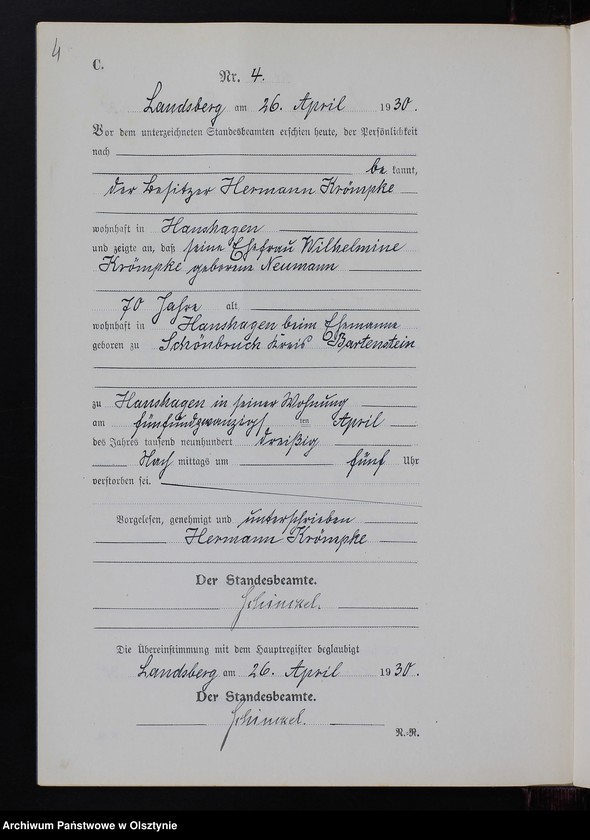 4
C.
Nr. 4.
Landsberg am 26. April 1930.
Vor dem unterzeichneten Standesbeamten erschien heute, der Persönlichkeit
nach
be kannt,
der Besitzer Hermann Krömpke
wohnhaft in Hanshagen
und zeigte an, daß seine Ehefrau Wilhelmine
Krömpke geborene Neumann
70 Jahre alt
wohnhaft in Hanshagen beim Ehemanne
geboren zu Schönbruch Kreis Bartenstein
zu Hanshagen in seiner Wohnung
am fünfundzwanzigsten April
des Jahres tausend neunhundert dreißig
Nach mittags um fünf Uhr
verstorben sei.
Vorgelesen, genehmigt und unterschrieben
Hermann Krömpke
Der Standesbeamte.
Schinckel.
Die Übereinstimmung mit dem Hauptregister beglaubigt
Landsberg am 26. April 1930.
Der Standesbeamte.
Schinckel.
R.=R.
Archiwum Państwowe w Olsztynie